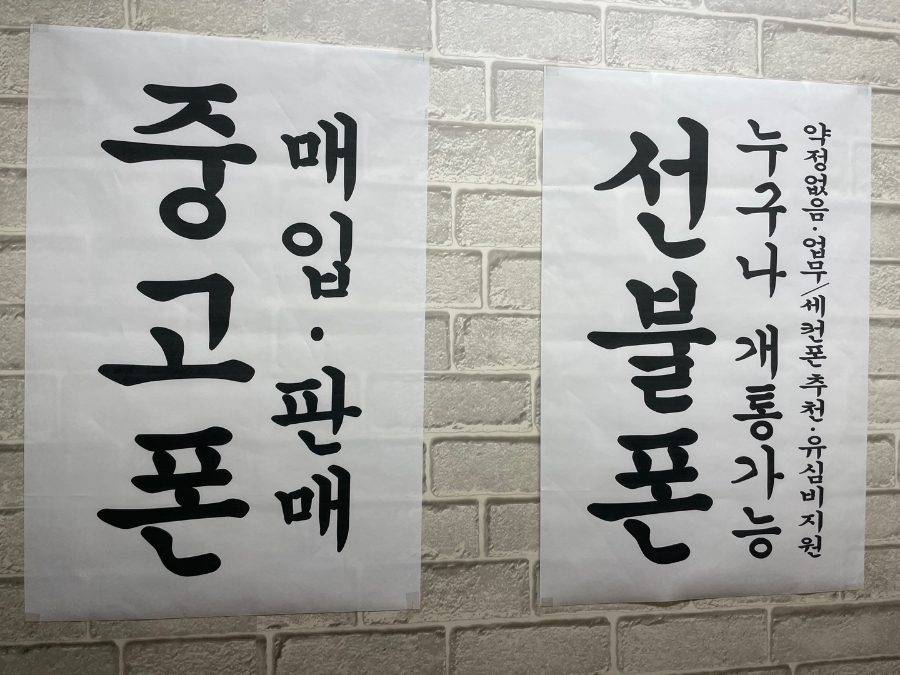 중고폰
매입·판매
선불폰
누구나 개통가능
약정없음·업무/세컨폰추천·유심비지원